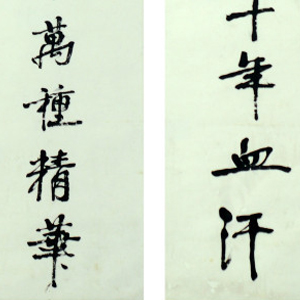 十年血汗
萬種精華